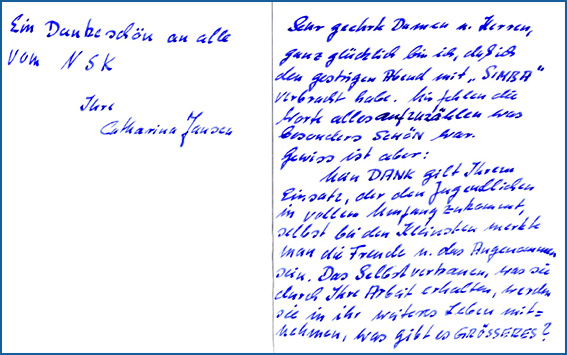 Ein Dankeschön an alle
vom NSK
Ihre
Catharina Jansen
Sehr geehrte Damen u. Herren,
ganz glücklich bin ich, daß ich
den gestrigen Abend mit „SiMBA"
verbracht habe. Mir fehlen die
Worte alles aufzuzählen was
besonders SCHÖN war.
Gewiss ist aber:
Mein DANK gilt Ihrem
Einsatz, der den Jugendlichen
in vollem Umfang zukommt,
selbst bei den Kleinsten merkte
man die Freude u. das Angenommen
sein. Das Selbstvertrauen, was sie
durch Ihre Arbeit erhalten, werden
sie in ihr weiteres Leben mit-
nehmen, was gibt es GRÖSSERES?